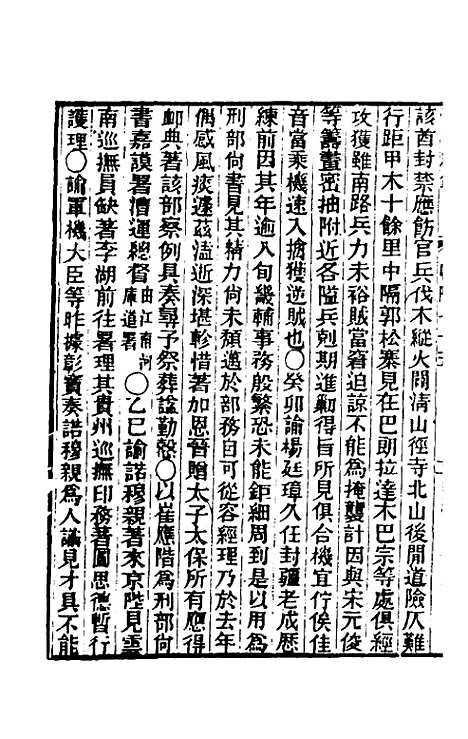 該酋封禁應飭官兵伐木縱火闢淸山徑寺北山後閒道險仄難
行距甲木十餘里中隔郭松寨見在巴朗拉達木巴宗等處俱經
攻獲雖南路兵力未裕賊當窘迫諒不能爲掩襲計因與宋元俊
等籌畫密抽附近各隘兵剋期進勦得旨所見俱合機宜佇俟佳
音當乘機速入擒獲逆賊也○癸卯諭楊廷璋久任封疆老成歷
練前因其年逾八旬畿輔事務殷繁恐未能鉅細周到是以用爲
刑部尙書見其精力尙未頹邁於部務自可從容經理乃於去年
偶感風痰遽茲溘逝深堪軫惜著加恩晉贈太子太保所有應得
卹典著該部察例具奏尋予祭葬諡勤慤○以崔應階爲刑部尙
書嘉謨署漕運總督由江南河庫道署○乙巳諭諾穆親著來京陛見雲
南巡撫員缺著李湖前往署理其貴州巡撫印務著圖思德暫行
護理○諭軍機大臣等昨據彰寶奏諾穆親爲人謹見才具不能